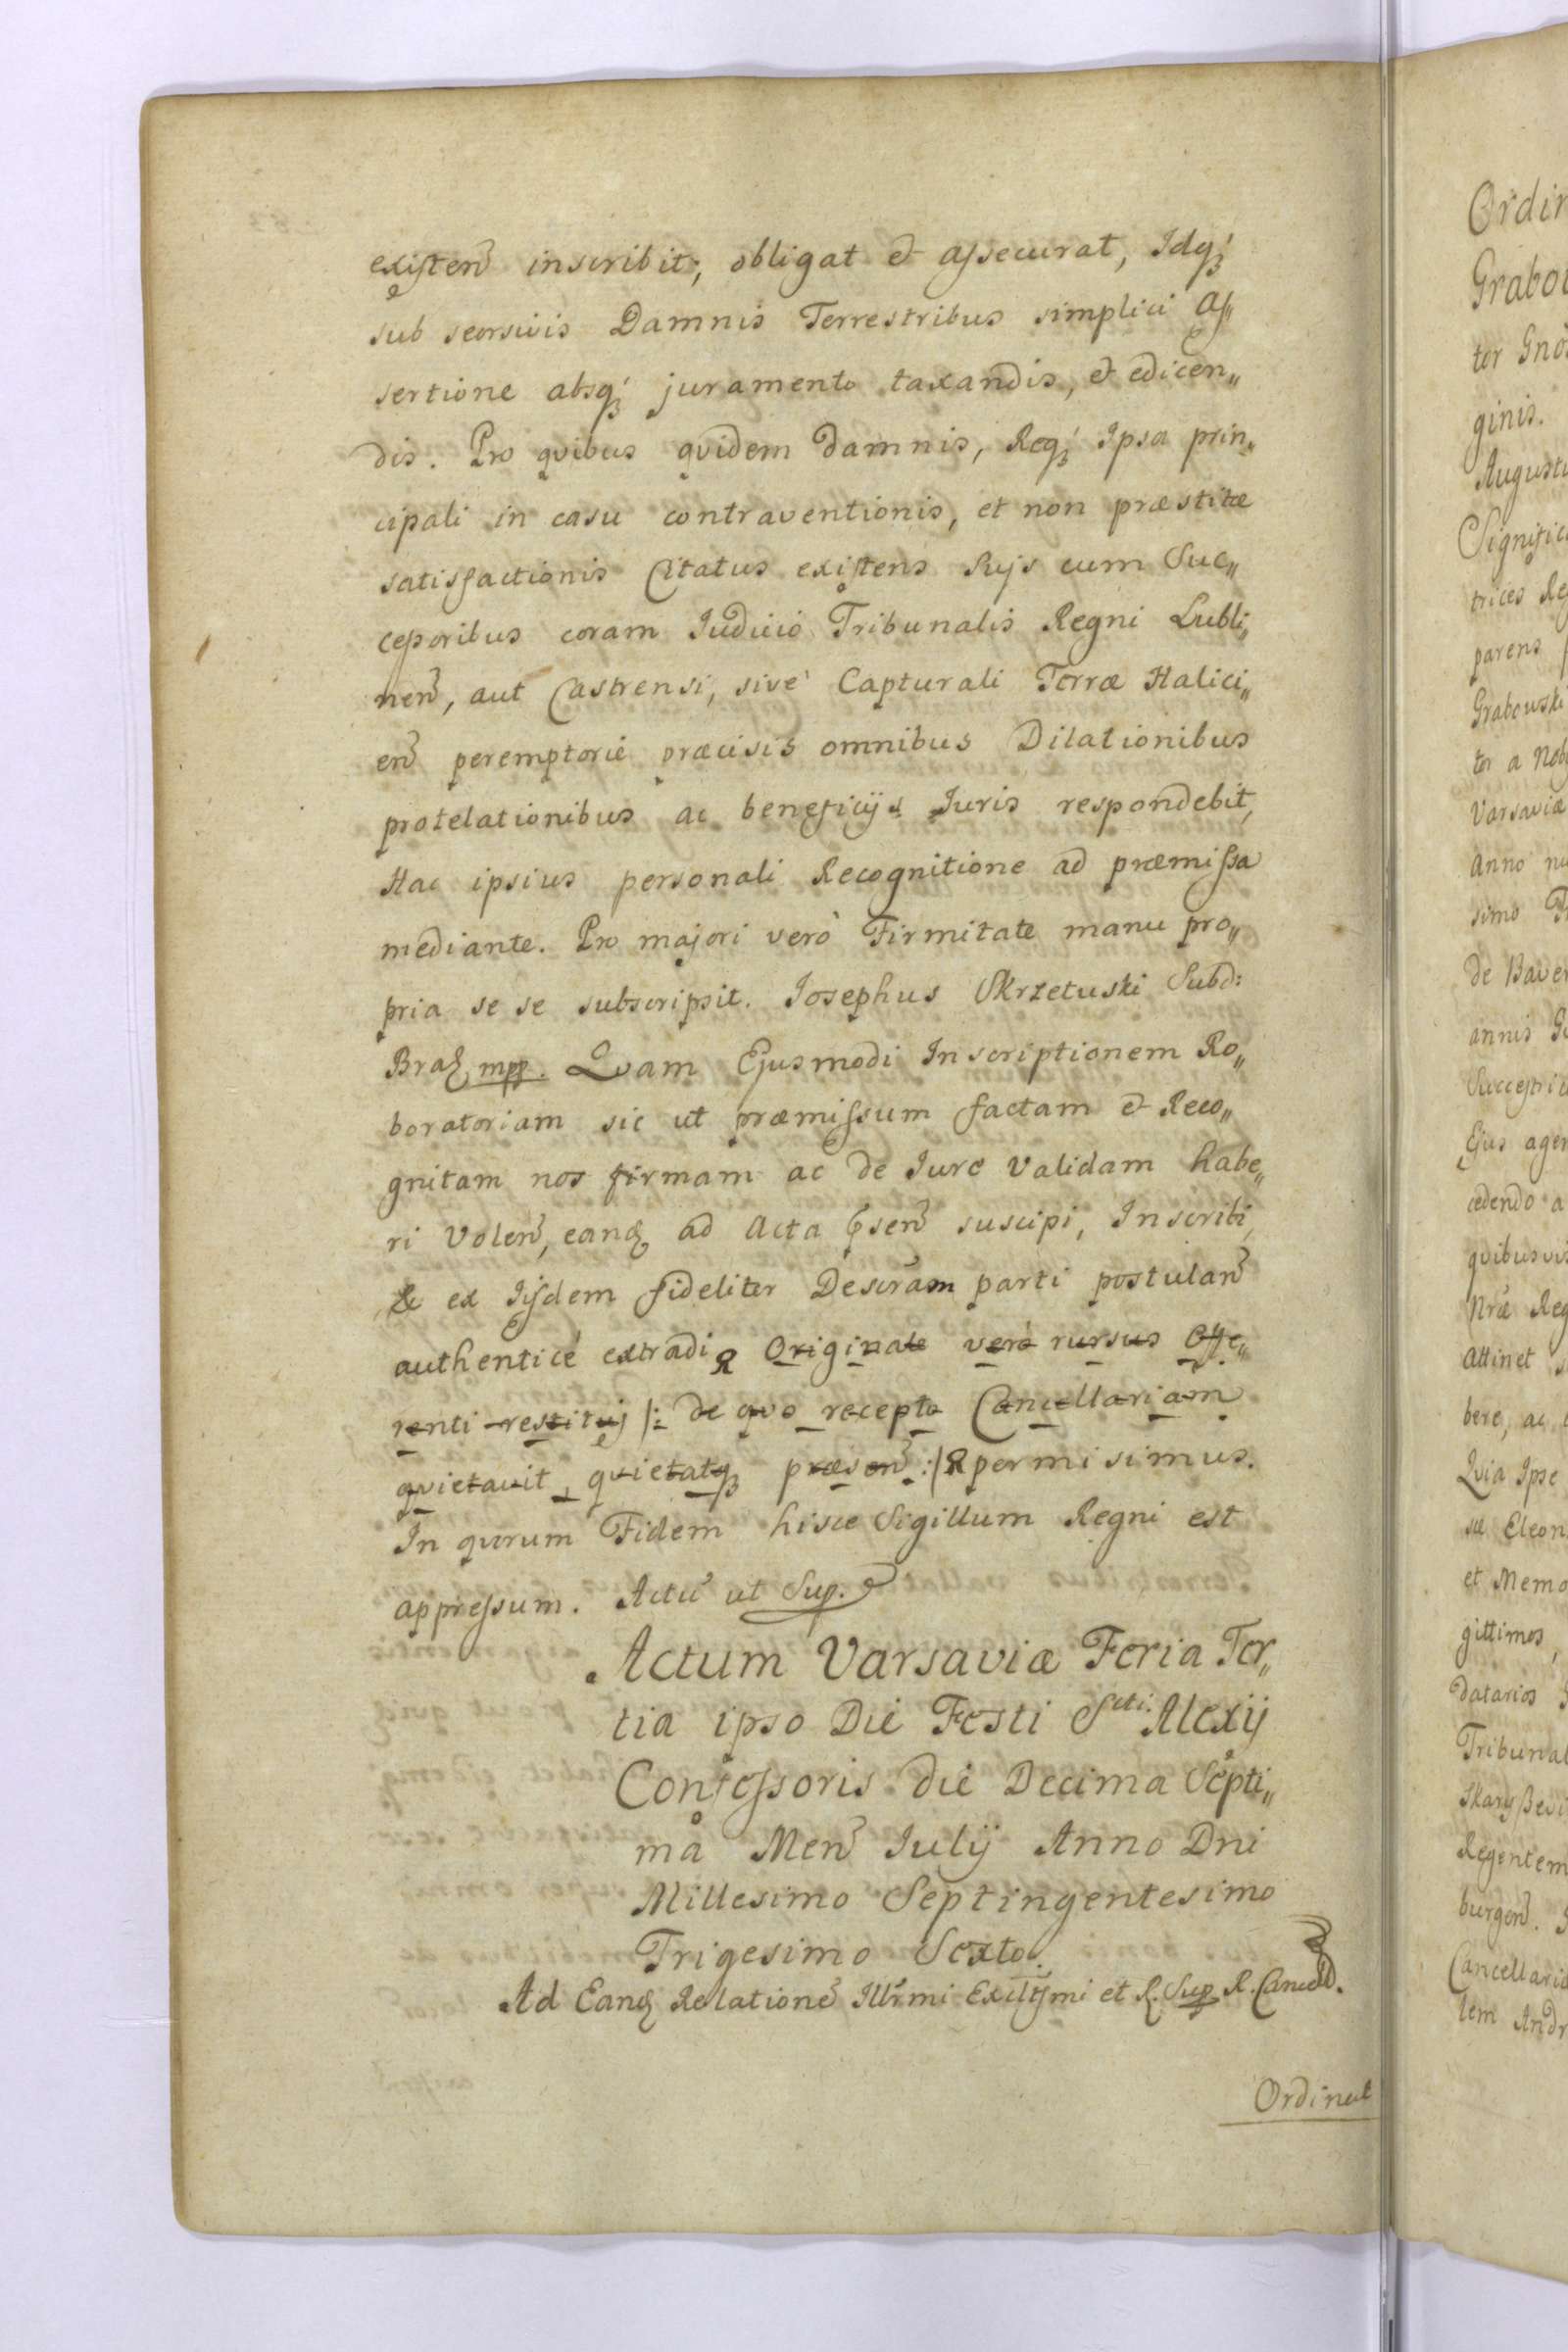 existen̄ inscribit, obligat et assecurat, Idq́ꝫ
sub seorsivis Damnis Terrestribus simplici As„
sertione absq́ꝫ juramento taxandis, et edicen„
dis. Pro qvibus qvidem damnis, Reqꝫ́ Ipsa prin„
cipali in casu contraventionis, et non præstitæ
satisfactionis Citatus existens suis cum Suc„
cessoribus coram Iudicio Tribunalis Regni Lubli„
nen̄, aut Castrensi, sivè Capturali Terræ Halici„
en̄ peremptoriè præcisis omnibus Dilationibus
protelationibus ac beneficijs Iuris respondebit,
Hac ipsius personali Recognitione ad præmissa
mediante. Pro majori verò Firmitate manu pro„
pria se se subscripsit. Iosephus Skrzetuski Subd:
Braꝫ mpp. Qvam Ejusmodi Inscriptionem Ro„
boratoriam sic ut præmissum factam et Reco„
gnitam nos firmam ac de Iure validam habe„
ri volen̄, eanꝗ ad Acta p̄sen̄ suscipi, Inscribi,
& ex Iisdem fideliter Descrām parti postulan̄
authenticé extradi Originale verò rursus Offe„
renti restitui /: de qvo recepto Cancellariam
qvietavit, qvietatqꝫ præsen̄ :/ permisimus.
In qvorum Fidem hisce Sigillum Regni est
appressum. Actū ut Sup.
Actum Varsaviæ Feria Ter„
tia ipso Die Festi Scti: Alexij
Confessoris die Decima Septi„
mâ Men̄ Iulij Anno Dni
Millesimo Septingentesimo
Trigesimo Sexto.
Ad Eanꝗ Relationē Illr̄mi Excltt̄mi et R. Sup R. Cancell.
Ordinat
Ordin
Grabo
tor Gno
ginis.
Augustu
Signific
trices Re
parens
Grabowski
tor a Nob
Varsaviæ
Anno
simo
de Baver
annis
Ejus agen
cedendo a
qvibusvis
Nrā Reg
Attinet
bere, ac
Qvia Ipse
Eleon
et Memo
gittimos,
datarios
Tribunal
Regentem
burgen̄.
Cancellaria
tem Andr